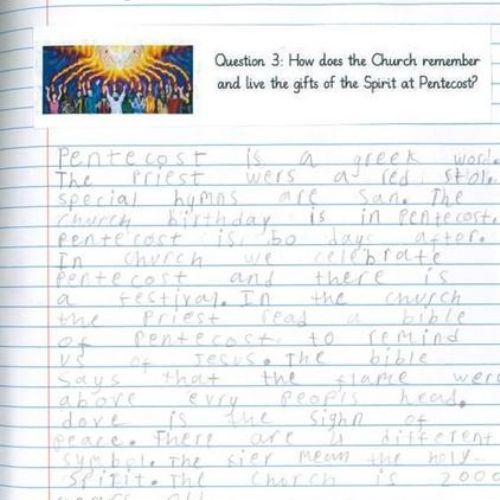 Question 3: How does the Church remember
and live the gifts of the Spirit at Pentecost?
Pentecost is a greek word.
The Priest wers a red stole.
special hymns are san. The
church birthday is in Pentecost.
Pentecost is 50 days after.
In church we celebrate
Pentecost and there is
a festival. In the church
the Priest read a bible
of Pentecost to remind
us of Jesus. The bible
says that the flame wers
above evry peop's head.
dove is the sighn of
peace. There are 4 different
symbol. The mean the holy
Spirit. The church is 2000
years